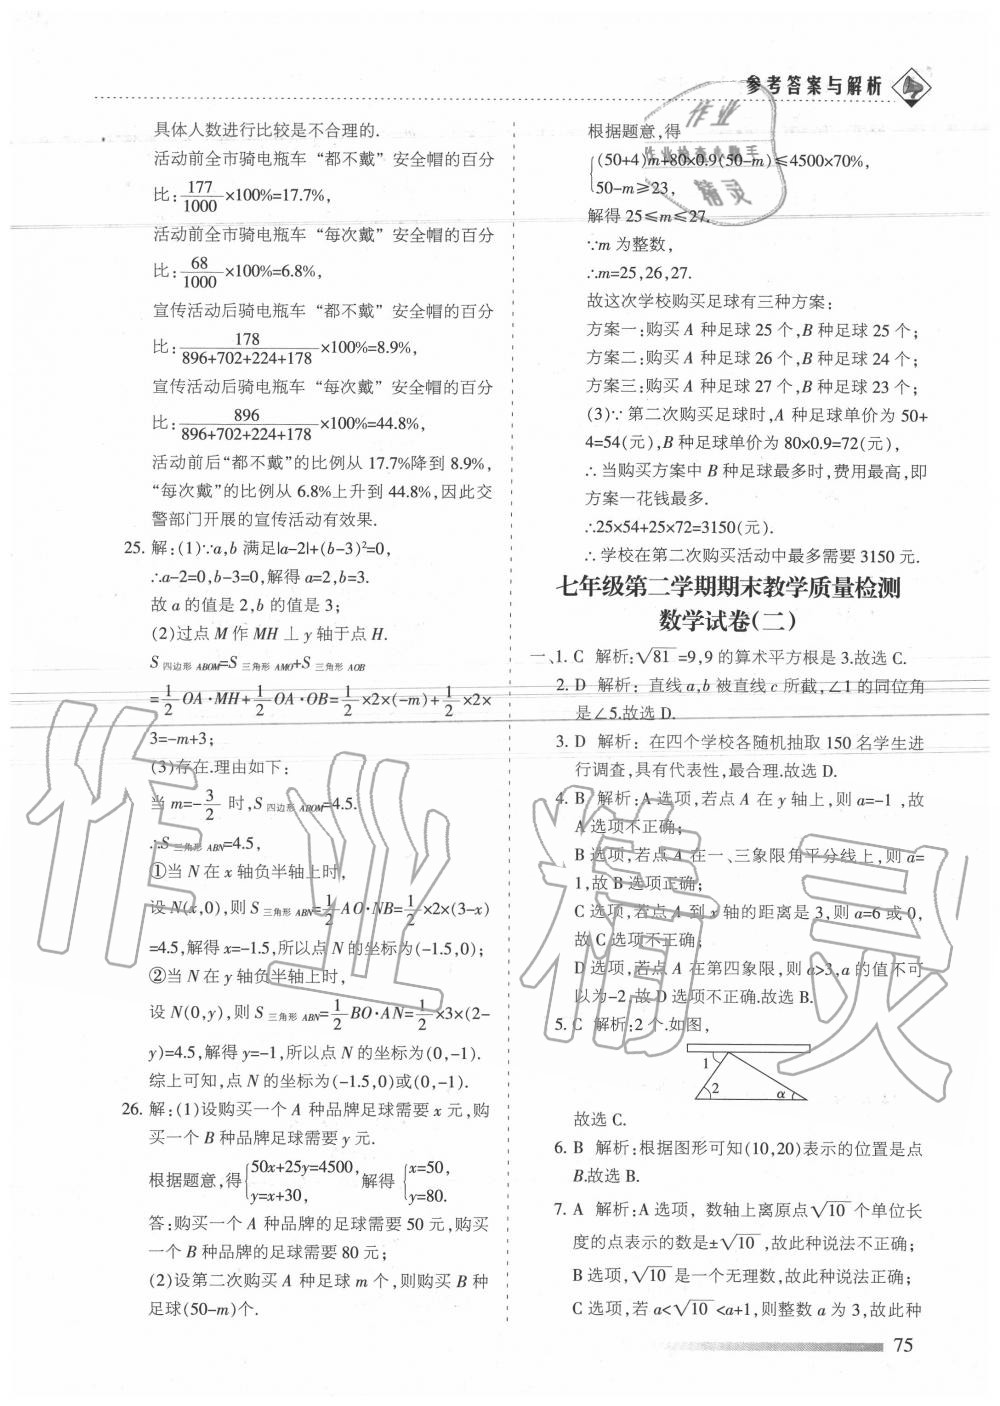 参考答案与解析
具体人数进行比较是不合理的.
活动前全市骑电瓶车“都不戴”安全帽的百分
比:177/1000×100%=17.7%,
活动前全市骑电瓶车“每次戴”安全帽的百分
比:68/1000×100%=6.8%,
宣传活动后骑电瓶车“都不戴”安全帽的百分
比:178/(896+702+224+178)×100%=8.9%,
宣传活动后骑电瓶车“每次戴”安全帽的百分
比:896/(896+702+224+178)×100%=44.8%,
活动前后“都不戴”的比例从 17.7%降到 8.9%,
“每次戴”的比例从 6.8%上升到 44.8%,因此交
警部门开展的宣传活动有效果.
25. 解:(1)∵a,b 满足|a-2|+(b-3)²=0,
∴a-2=0,b-3=0,解得 a=2,b=3.
故 a 的值是 2,b 的值是 3;
(2)过点 M 作 MH⊥y 轴于点 H.
S四边形ABOM=S三角形AMO+S三角形AOB
=1/2 OA·MH+1/2 OA·OB=1/2×2×(-m)+1/2×2×
3=-m+3;
(3)存在.理由如下:
当 m=-3/2 时,S四边形ABOM=4.5.
∴S三角形ABN=4.5,
①当 N 在 x 轴负半轴上时,
设 N(x,0),则 S三角形ABN=1/2 AO·NB=1/2×2×(3-x)
=4.5,解得 x=-1.5,所以点 N 的坐标为(-1.5,0);
②当 N 在 y 轴负半轴上时,
设 N(0,y),则 S三角形ABN=1/2 BO·AN=1/2×3×(2-
y)=4.5,解得 y=-1,所以点 N 的坐标为(0,-1).
综上可知,点 N 的坐标为(-1.5,0)或(0,-1).
26. 解:(1)设购买一个 A 种品牌足球需要 x 元,购
买一个 B 种品牌足球需要 y 元.
根据题意,得{50x+25y=4500, y=x+30, 解得{x=50, y=80.
答:购买一个 A 种品牌的足球需要 50 元,购买
一个 B 种品牌的足球需要 80 元;
(2)设第二次购买 A 种足球 m 个,则购买 B 种
足球(50-m)个.
根据题意,得
{(50+4)m+80×0.9(50-m)≤4500×70%,
50-m≥23,
解得 25≤m≤27.
∵m 为整数,
∴m=25,26,27.
故这次学校购买足球有三种方案:
方案一:购买 A 种足球 25 个,B 种足球 25 个;
方案二:购买 A 种足球 26 个,B 种足球 24 个;
方案三:购买 A 种足球 27 个,B 种足球 23 个;
(3)∵第二次购买足球时,A 种足球单价为 50+
4=54(元),B 种足球单价为 80×0.9=72(元),
∴当购买方案中 B 种足球最多时,费用最高,即
方案一花钱最多.
∴25×54+25×72=3150(元).
∴学校在第二次购买活动中最多需要 3150 元.
七年级第二学期期末教学质量检测
数学试卷(二)
一、1. C 解析:√81=9,9 的算术平方根是 3.故选 C.
2. D 解析:直线 a,b 被直线 c 所截,∠1 的同位角
是∠5.故选 D.
3. D 解析:在四个学校各随机抽取 150 名学生进
行调查,具有代表性,最合理.故选 D.
4. B 解析:A 选项,若点 A 在 y 轴上,则 a=-1,故
A 选项不正确;
B 选项,若点 A 在一、三象限角平分线上,则 a=
1,故 B 选项正确;
C 选项,若点 A 到 x 轴的距离是 3,则 a=6 或 0,
故 C 选项不正确;
D 选项,若点 A 在第四象限,则 a>3,a 的值不可
以为-2,故 D 选项不正确.故选 B.
5. C 解析:2 个.如图,
1
2
α
故选 C.
6. B 解析:根据图形可知(10,20)表示的位置是点
B.故选 B.
7. A 解析:A 选项,数轴上离原点√10 个单位长
度的点表示的数是±√10,故此种说法不正确;
B 选项,√10 是一个无理数,故此种说法正确;
C 选项,若 a<√10<a+1,则整数 a 为 3,故此种
75
作业
精灵
作业精灵